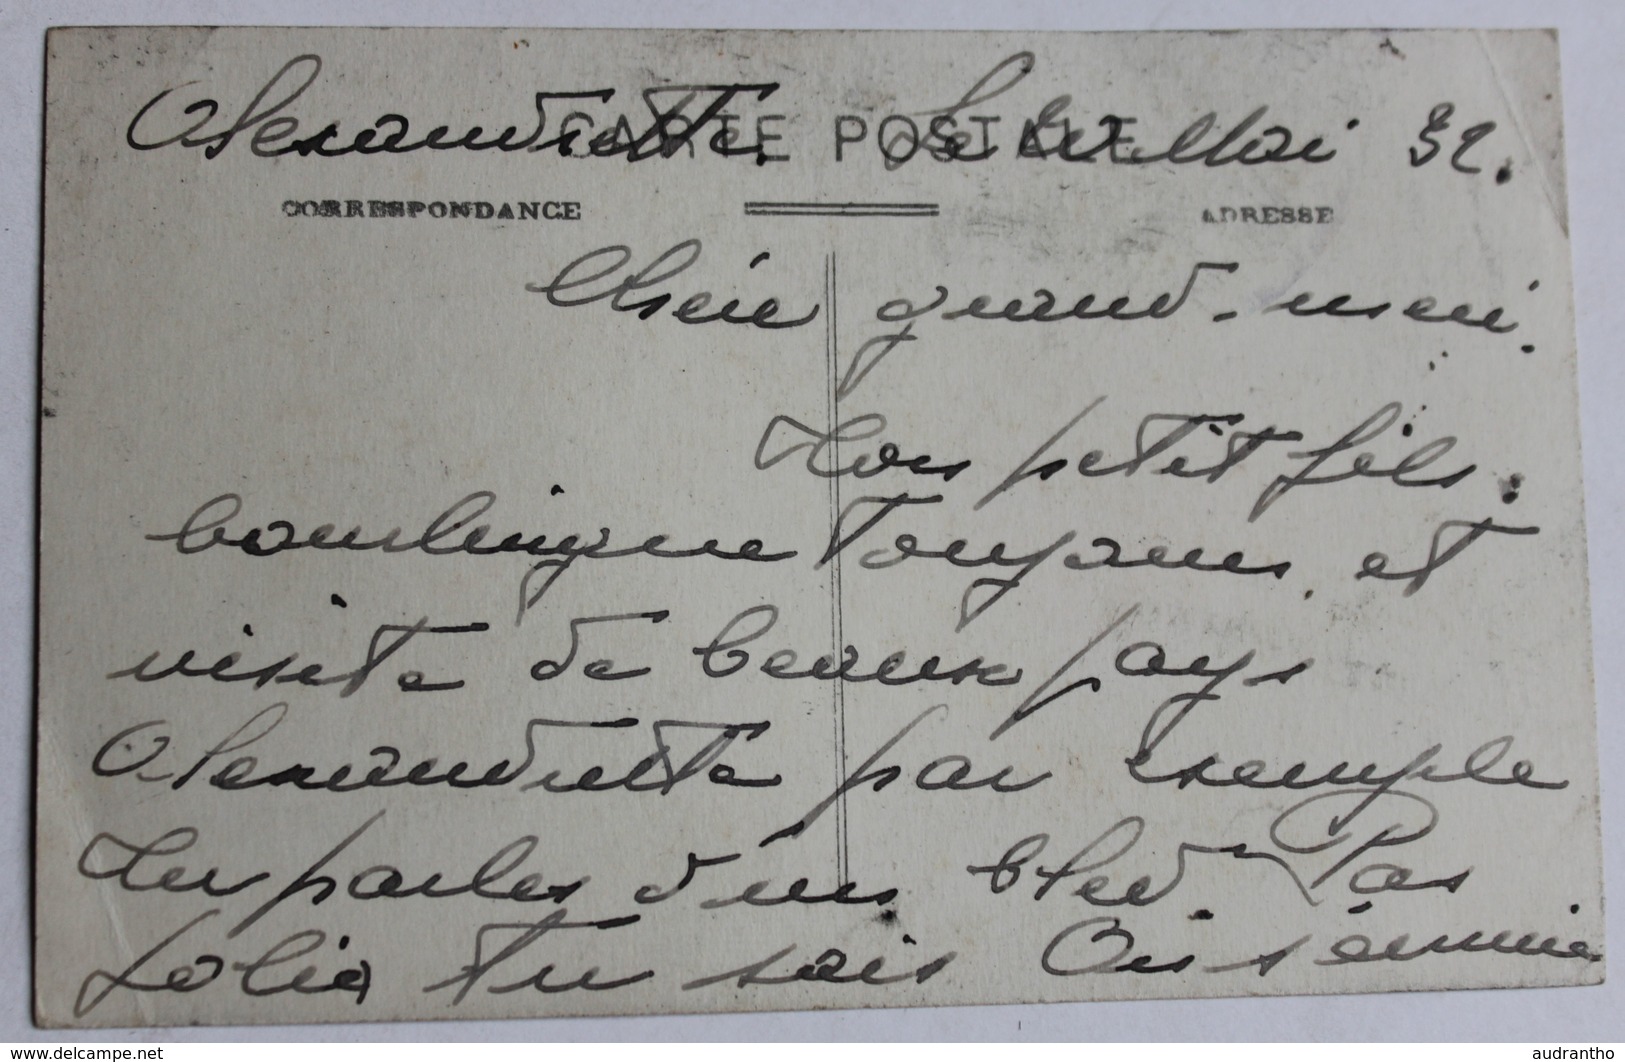 Alexandrette. Le Mai 32.
CARTE POSTALE
CORRESPONDANCE
ADRESSE
Chère grand-mère.
Ton petit fils.
bourlingue toujours et
visite de beaux pays
Alexandrette par exemple
Tu parles d'un bled. Pas
jolie tu sais On s'ennuie
www.delcampe.net
audrantho